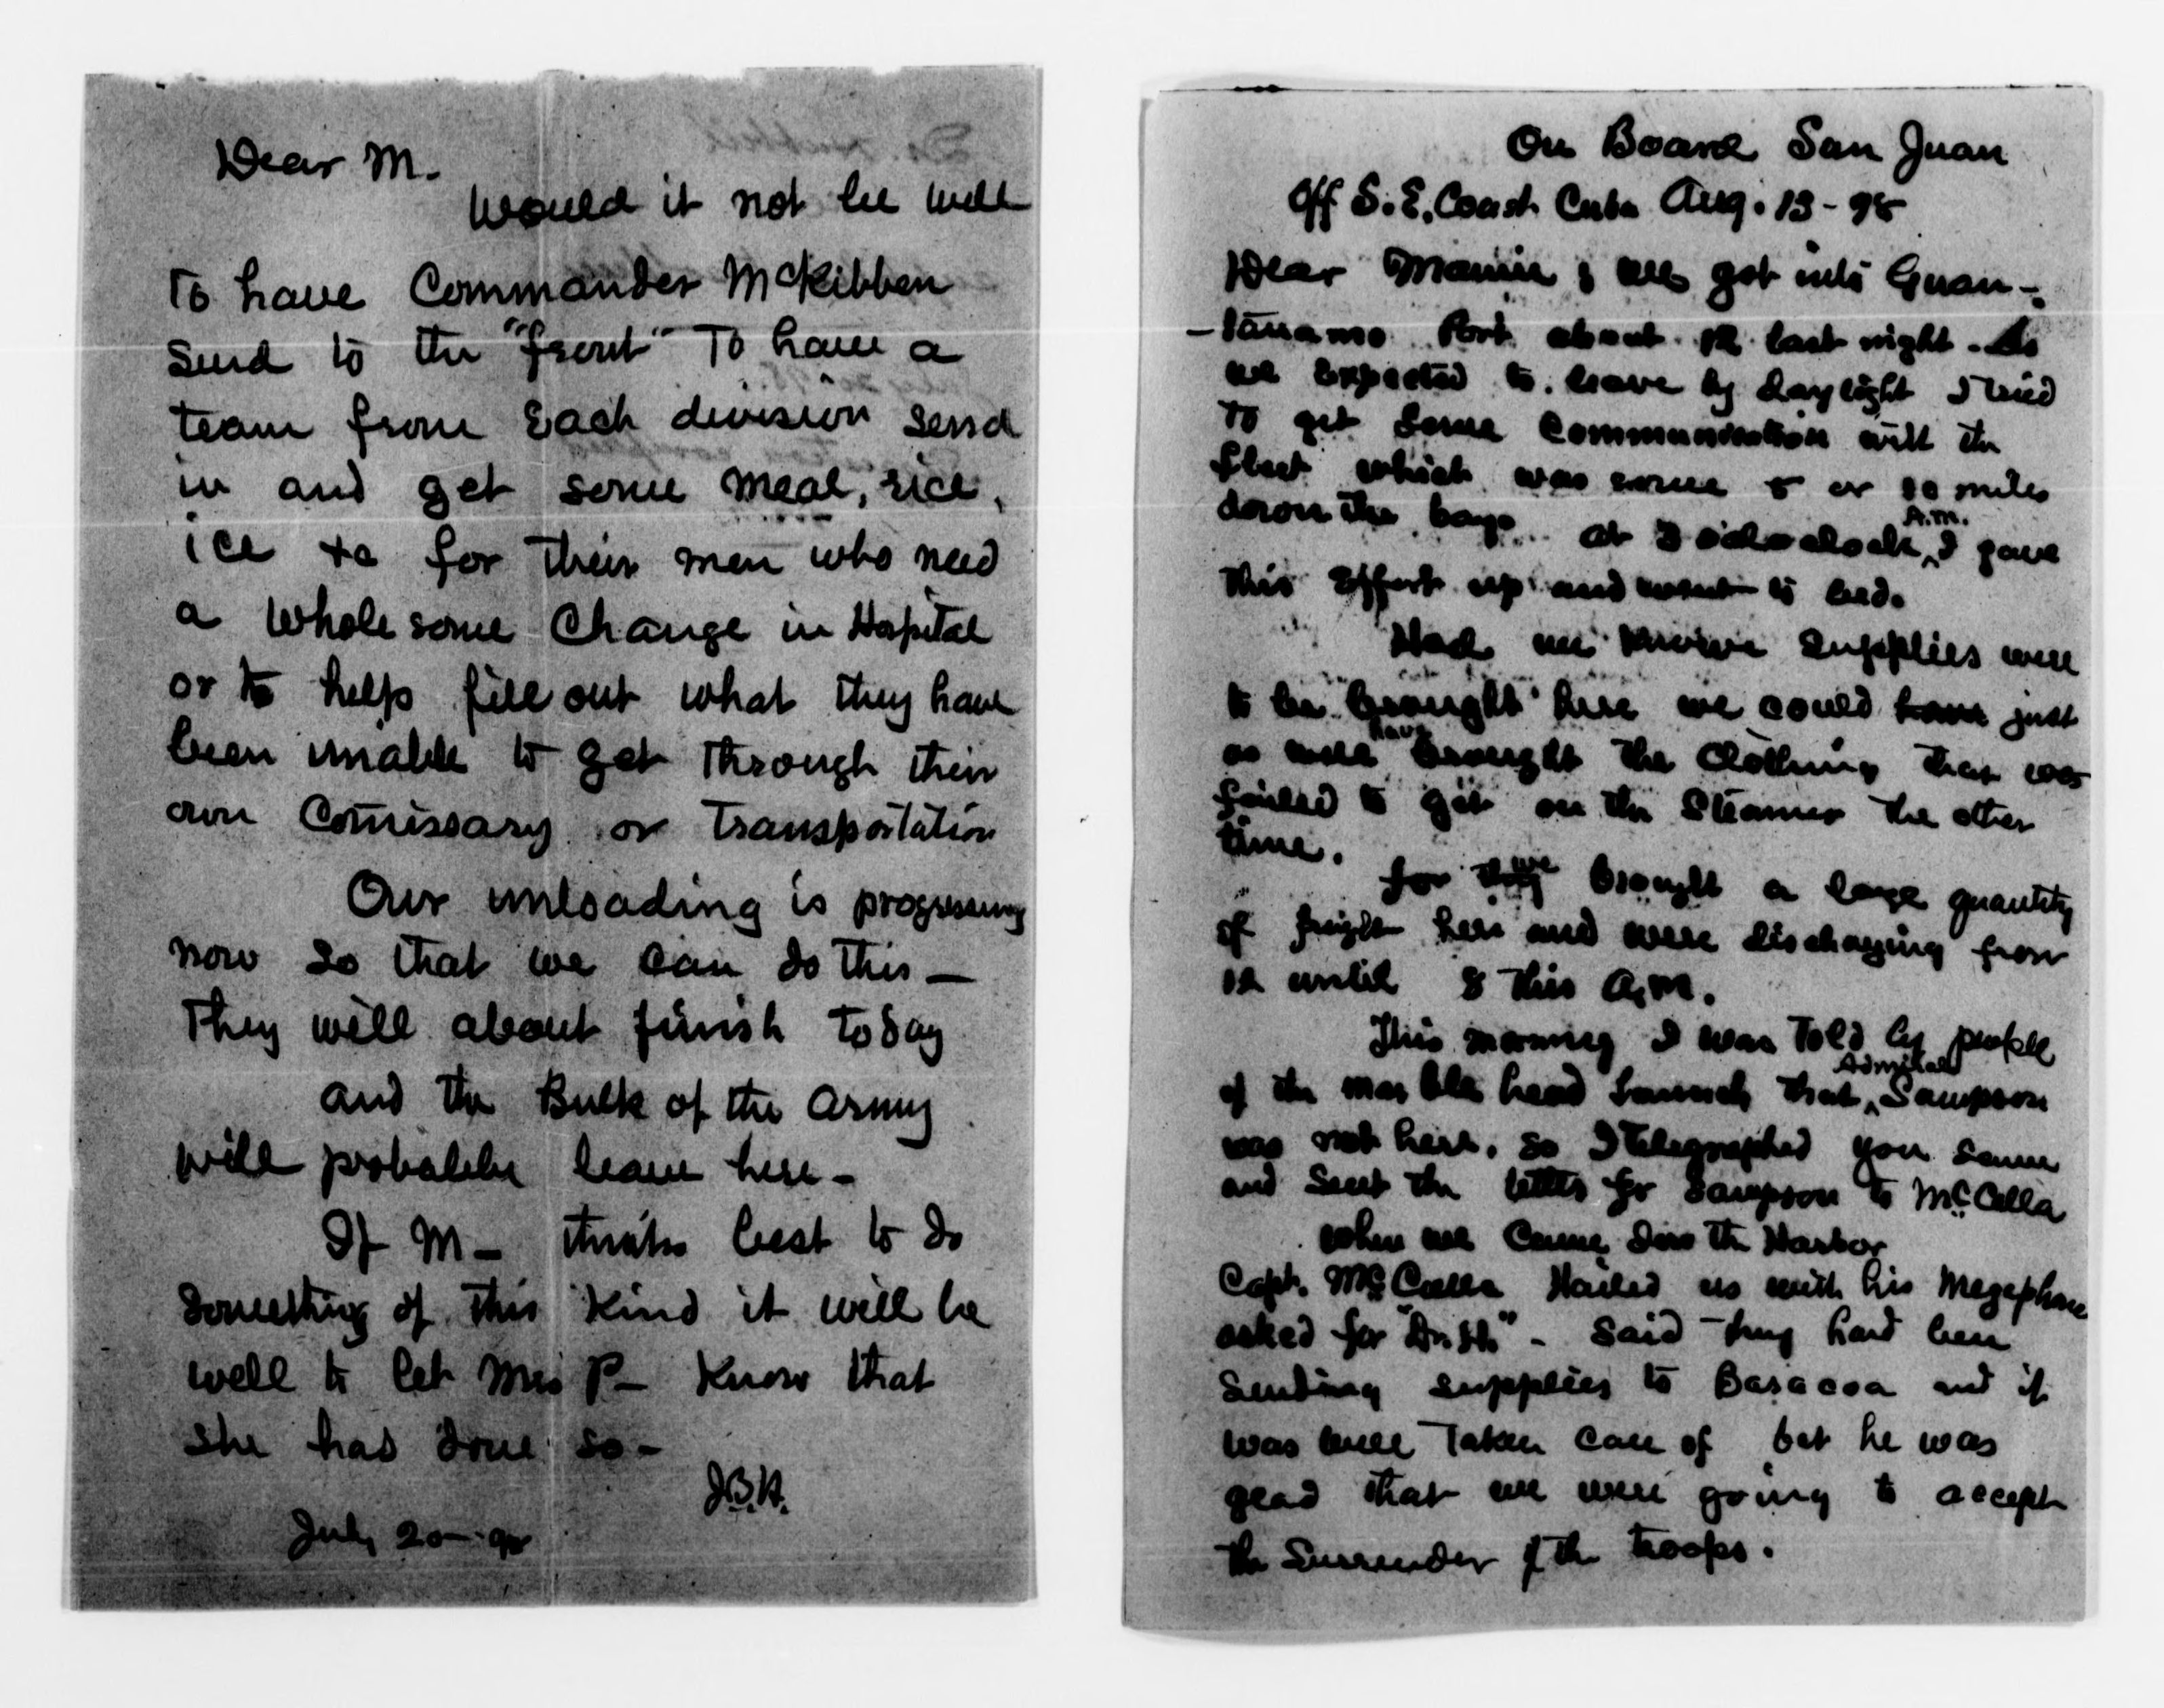 Dear M.
Would it not be well
To have Commander McKibben
send to the "front" To have a
team from Each division send
in and get some meal, rice,
ice &c for their men who need
a Wholesome Change in Hospital
or to help fill out what they have
been unable to get Through their
own Comissary or Transportation
Our unloading is progressing
now so that we can do this —
They will about finish today
and the Bulk of the Army
will probably leave here —
If M — thinks best to do
something of this kind it will be
well to let Mrs P — Know that
she has done so —
J.B.H.
July 20 - 98
On Board San Juan
Off S.E. Coast Cuba Aug. 13 - 98
Dear Mamie; we got into Guan-
-tanamo Port about 12 last night. As
we Expected to leave by daylight I tried
To get some Communication with the
fleet which was some 8 or 10 miles
down the bay. At 3 o'clock A.M. I gave
this Effort up and went to bed.
Had we known supplies were
to be brought here we could just
as well have brought the Clothing that was
failed to get on the Steamer the other
time.
for we brought a large quantity
of freight here and were discharging from
12 until 8 this A.M.
This morning I was Told by people
of the marblehead launch that Admiral Sampson
was not here. So I telegraphed you same
and sent the letter for Sampson to McCalla
When we came down the Harbor
Capt. McCalla Hailed us with his Megaphone
asked for "Dr. H." - Said they had been
sending supplies to Baracoa and it
was well Taken care of but he was
glad that we were going to accept
the Surrender of the troops.